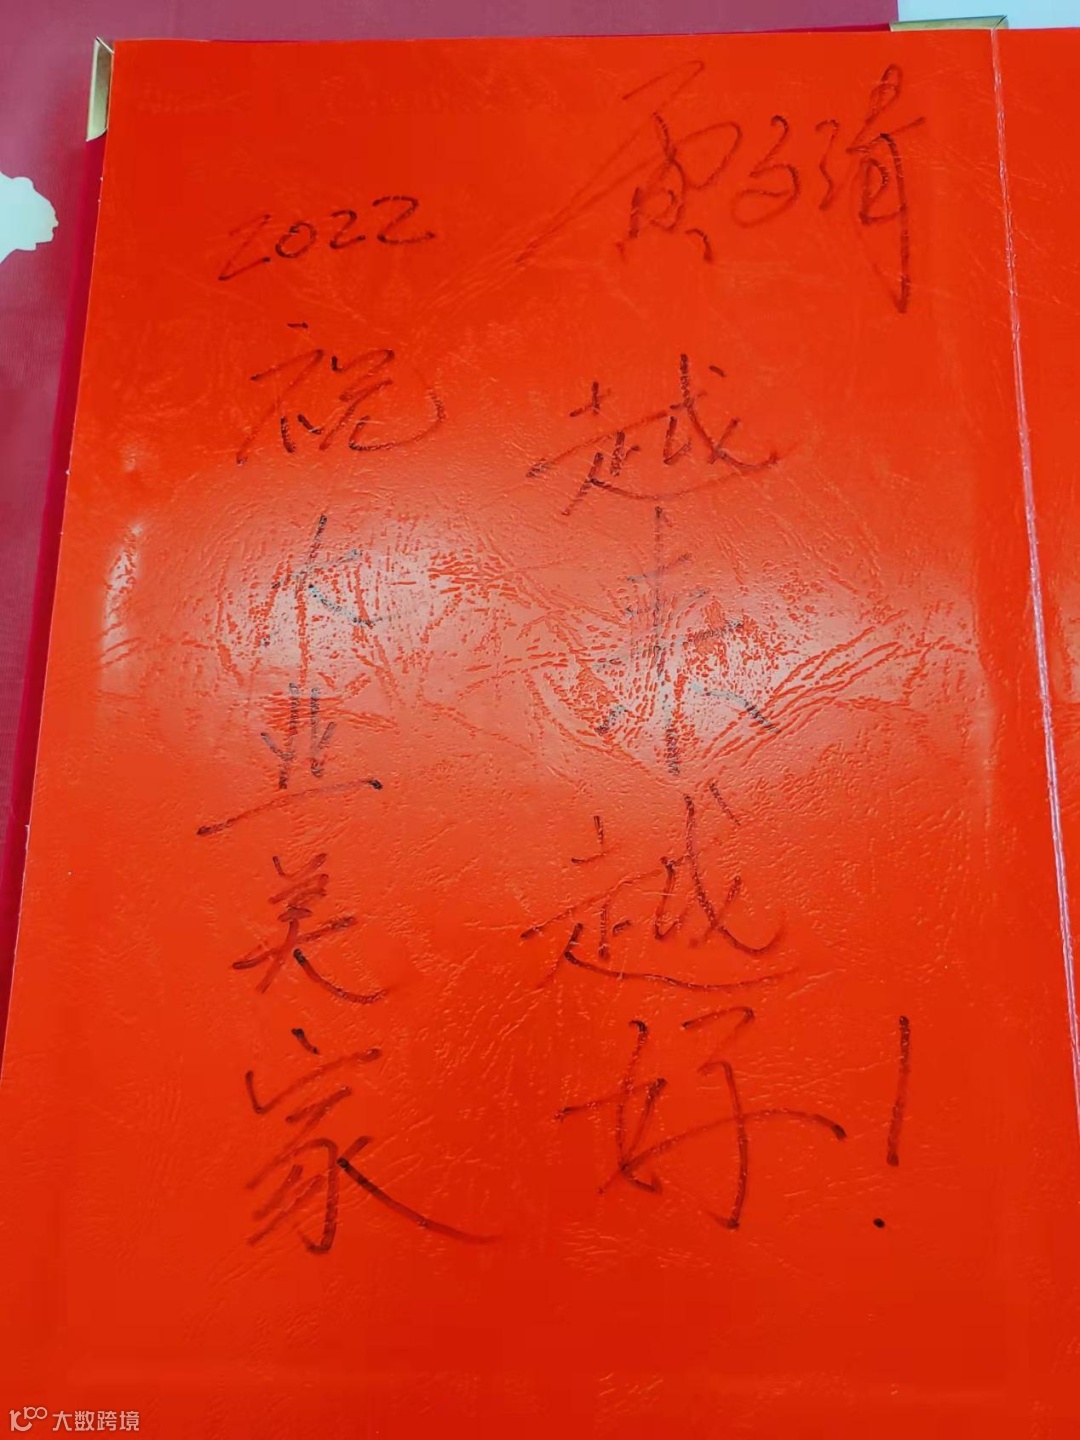 2022
祝木业美家
越来越好！
大数跨境